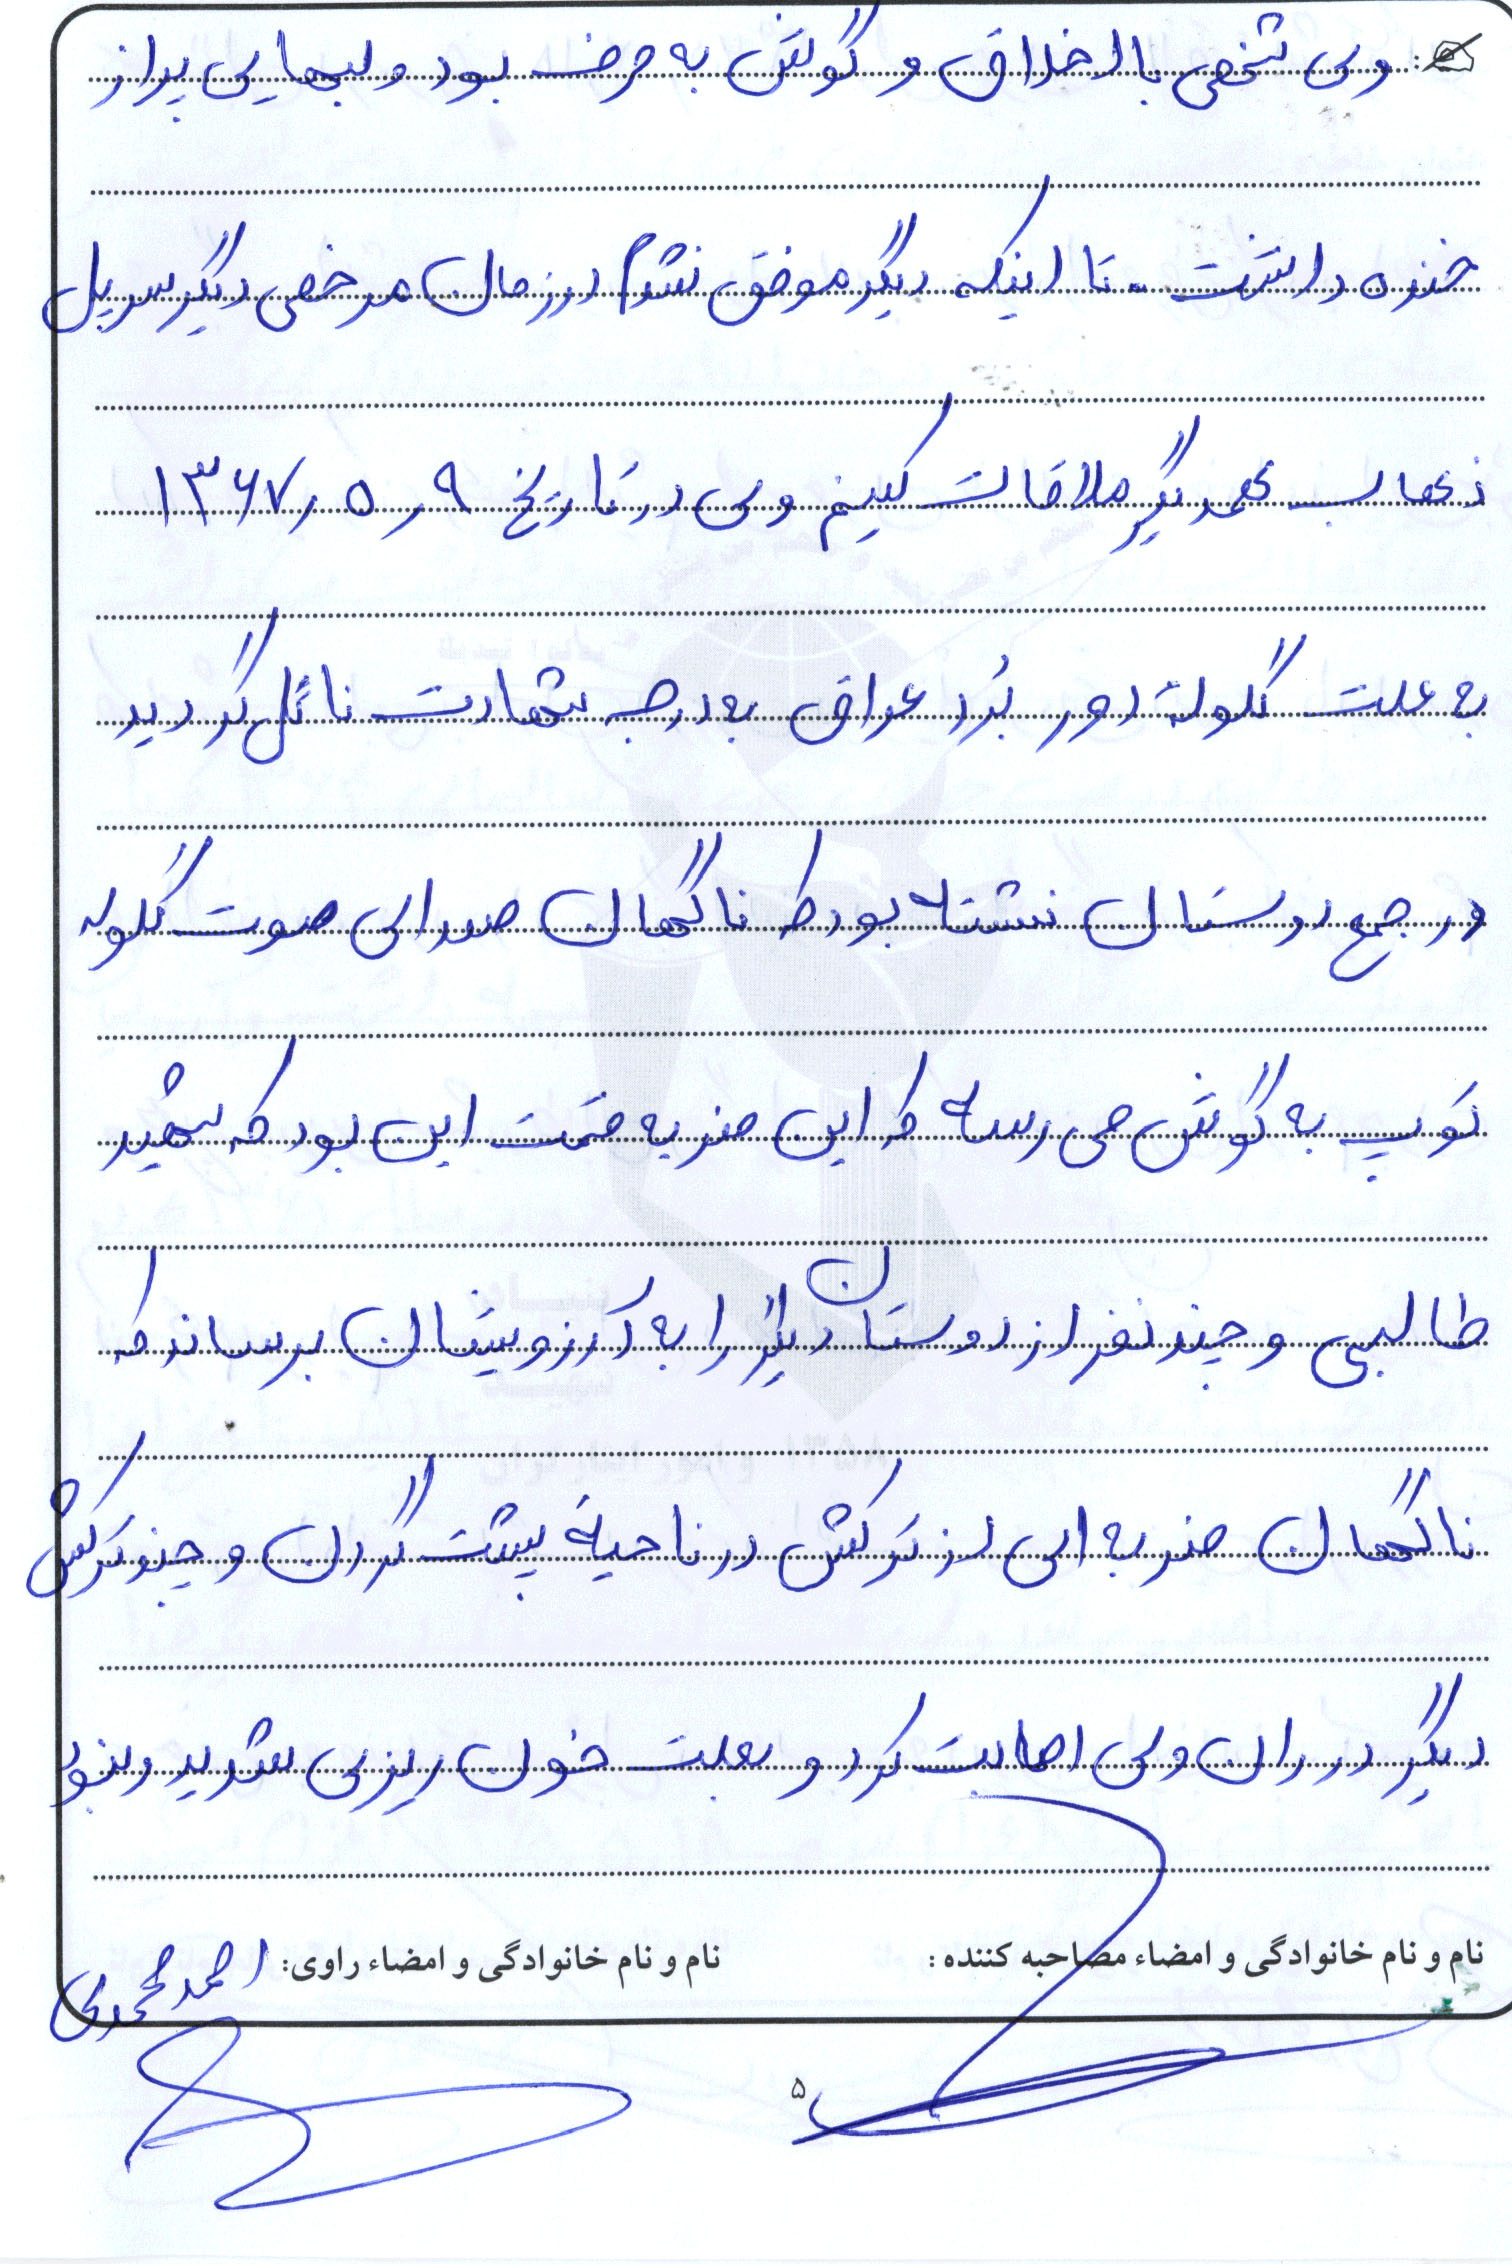 : وی شخصی با اخلاق و گوش به حرف بود و لبهایی پر از
خنده داشت - تا اینکه دیگر موفق نشدم در زمان مرخصی دیگر سرپل
ذهاب همدیگر ملاقات کنیم وی در تاریخ ۹ ر ۵ ر ۱۳۶۷
به علت گلولهٔ دور بُرد عراق به درجه شهادت نائل گردید
در جمع دوستان نشسته بود که ناگهان صدای صوت گلوله
توپ به گوش می رسد که این ضربه قسمت این بود که شهید
طالبی و چند نفر از دوستان دیگر را به آرزویشان برساند که
ناگهان ضربه ای از ترکش در ناحیهٔ پشت گردن و چند ترکش
دیگر در ران وی اصابت کرد و بعلت خون ریزی شدید و نبود
نام و نام خانوادگی و امضاء مصاحبه کننده :
نام و نام خانوادگی و امضاء راوی: احمد محمدی
۵